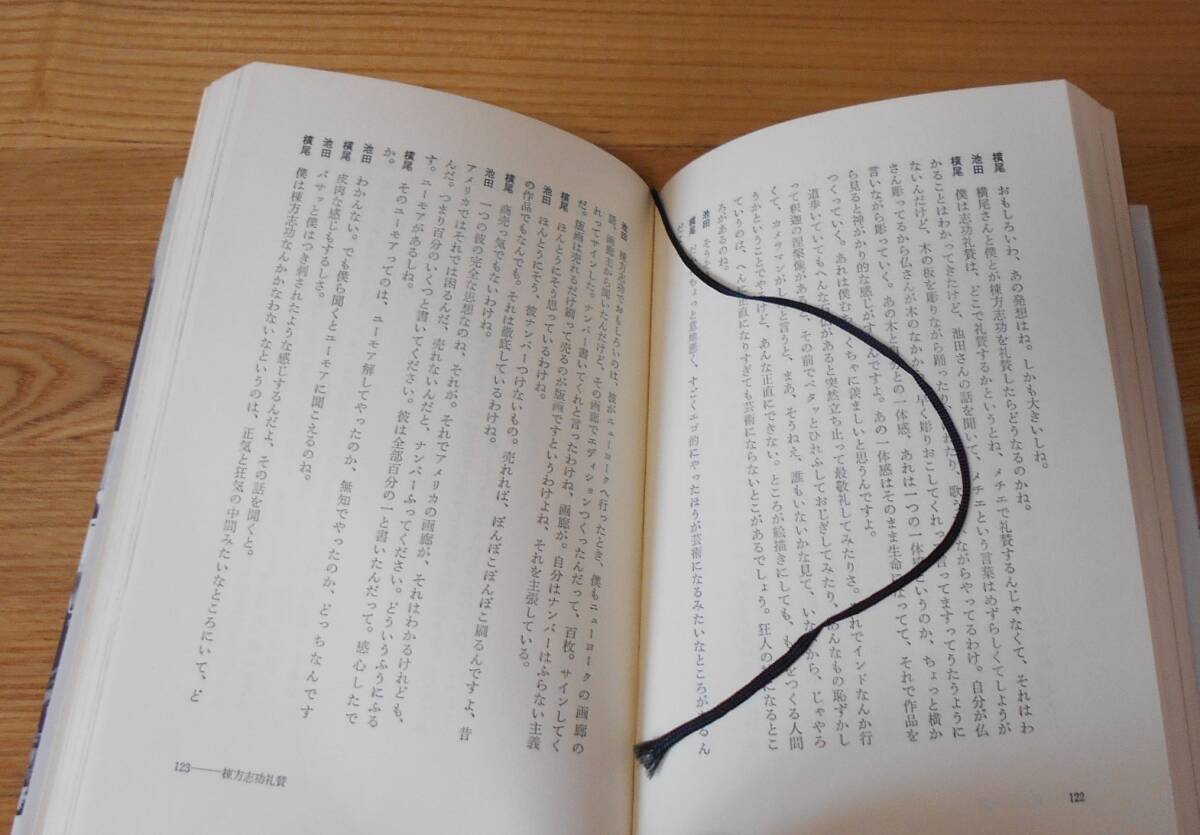 横尾 おもしろいわ、あの発想はね。しかも大きいしね。
池田 横尾さんと僕とが棟方志功を礼賛したらどうなるのかね。
横尾 僕は志功礼賛は、どこで礼賛するかというとね、メチエで礼賛するんじゃなくて、それはわ
かることはわかってきたけど、池田さんの話を聞いて、メチエという言葉はめずらしくてしようが
ないんだけど、木の板を彫りながら踊ったり、
歌
ながらやってるわけ。自分が仏
さん彫ってるから仏さんが木のなかか
早く彫りおこしてくれっ
言ってますってうたうように
言いながら彫っていく。あの木と自分との一体感、あれは一つの一体感というのか、ちょっと横か
ら見ると神がかり的な感じがするんですよ。あの一体感はそのまま生命
なってて、それで作品を
つくっていく。あれは僕むちゃくちゃに羨ましいと思うんですよ。
道歩いていてもへんな
があると突然立ち止って最敬礼してみたりさ。それでインドなんか行
って釈迦の涅槃像があると、その前でペタッとひれふしておじぎしてみたり、あんなもの恥ずかし
くて、カメラマンがしろと言うと、まあ、そうねえ、誰もいないかな見て、いな
から、じゃやろ
うかということでやるけど、あんな正直にできない。ところが絵描きにしても、も
をつくる人間
ていうのは、へんに正直になりすぎても芸術にならないとこがあるでしょう。狂人の
になるとこ
ろがあるのね。
池田 そう
横尾
ちょっと意地悪く、すごくエゴ的にやったほうが芸術になるみたいなところがあるん
だ
122
池田 棟方志功でおもしろいのは、彼がニューヨークへ行ったとき、僕もニューヨークの画廊の
話、画廊主から聞いたんだけど、その画廊でエディションつくったんだって、百枚。サインしてく
れってサインした。ナンバー書いてくれと言ったわけね、画廊が。自分はナンバーはふらない主義
だ。版画は売れるだけ刷って売るのが版画ですというわけよね、それを主張している。
横尾 ほんとうにそう思っているわけね。
池田 ほんとうにそう、彼ナンバーつけないもの。売れれば、ぼんぼこぼんぼこ刷るんですよ、昔
の作品でもなんでも。それは徹底しているわけね。
横尾 商売っ気でもないわけね。
池田 一つの彼の完全な思想なのね、それが。それでアメリカの画廊が、それはわかるけれども、
アメリカではそれでは困るんだ、売れないんだと、ナンバーふってください。どういうふうにふる
んだ。つまり百分のいくつと書いてください。彼は全部百分の一と書いたんだって。感心したで
す。ユーモアがあるしね。
横尾 そのユーモアってのは、ユーモア解してやったのか、無知でやったのか、どっちなんです
か。
池田 わかんない。でも僕ら聞くとユーモアに聞こえるのね。
横尾 皮肉な感じもするしさ。
池田 バサッと僕はつき刺されたような感じするんだよ、その話を聞くと。
横尾 僕は棟方志功なんかかなわないなというのは、正気と狂気の中間みたいなところにいて、ど
123――棟方志功礼賛